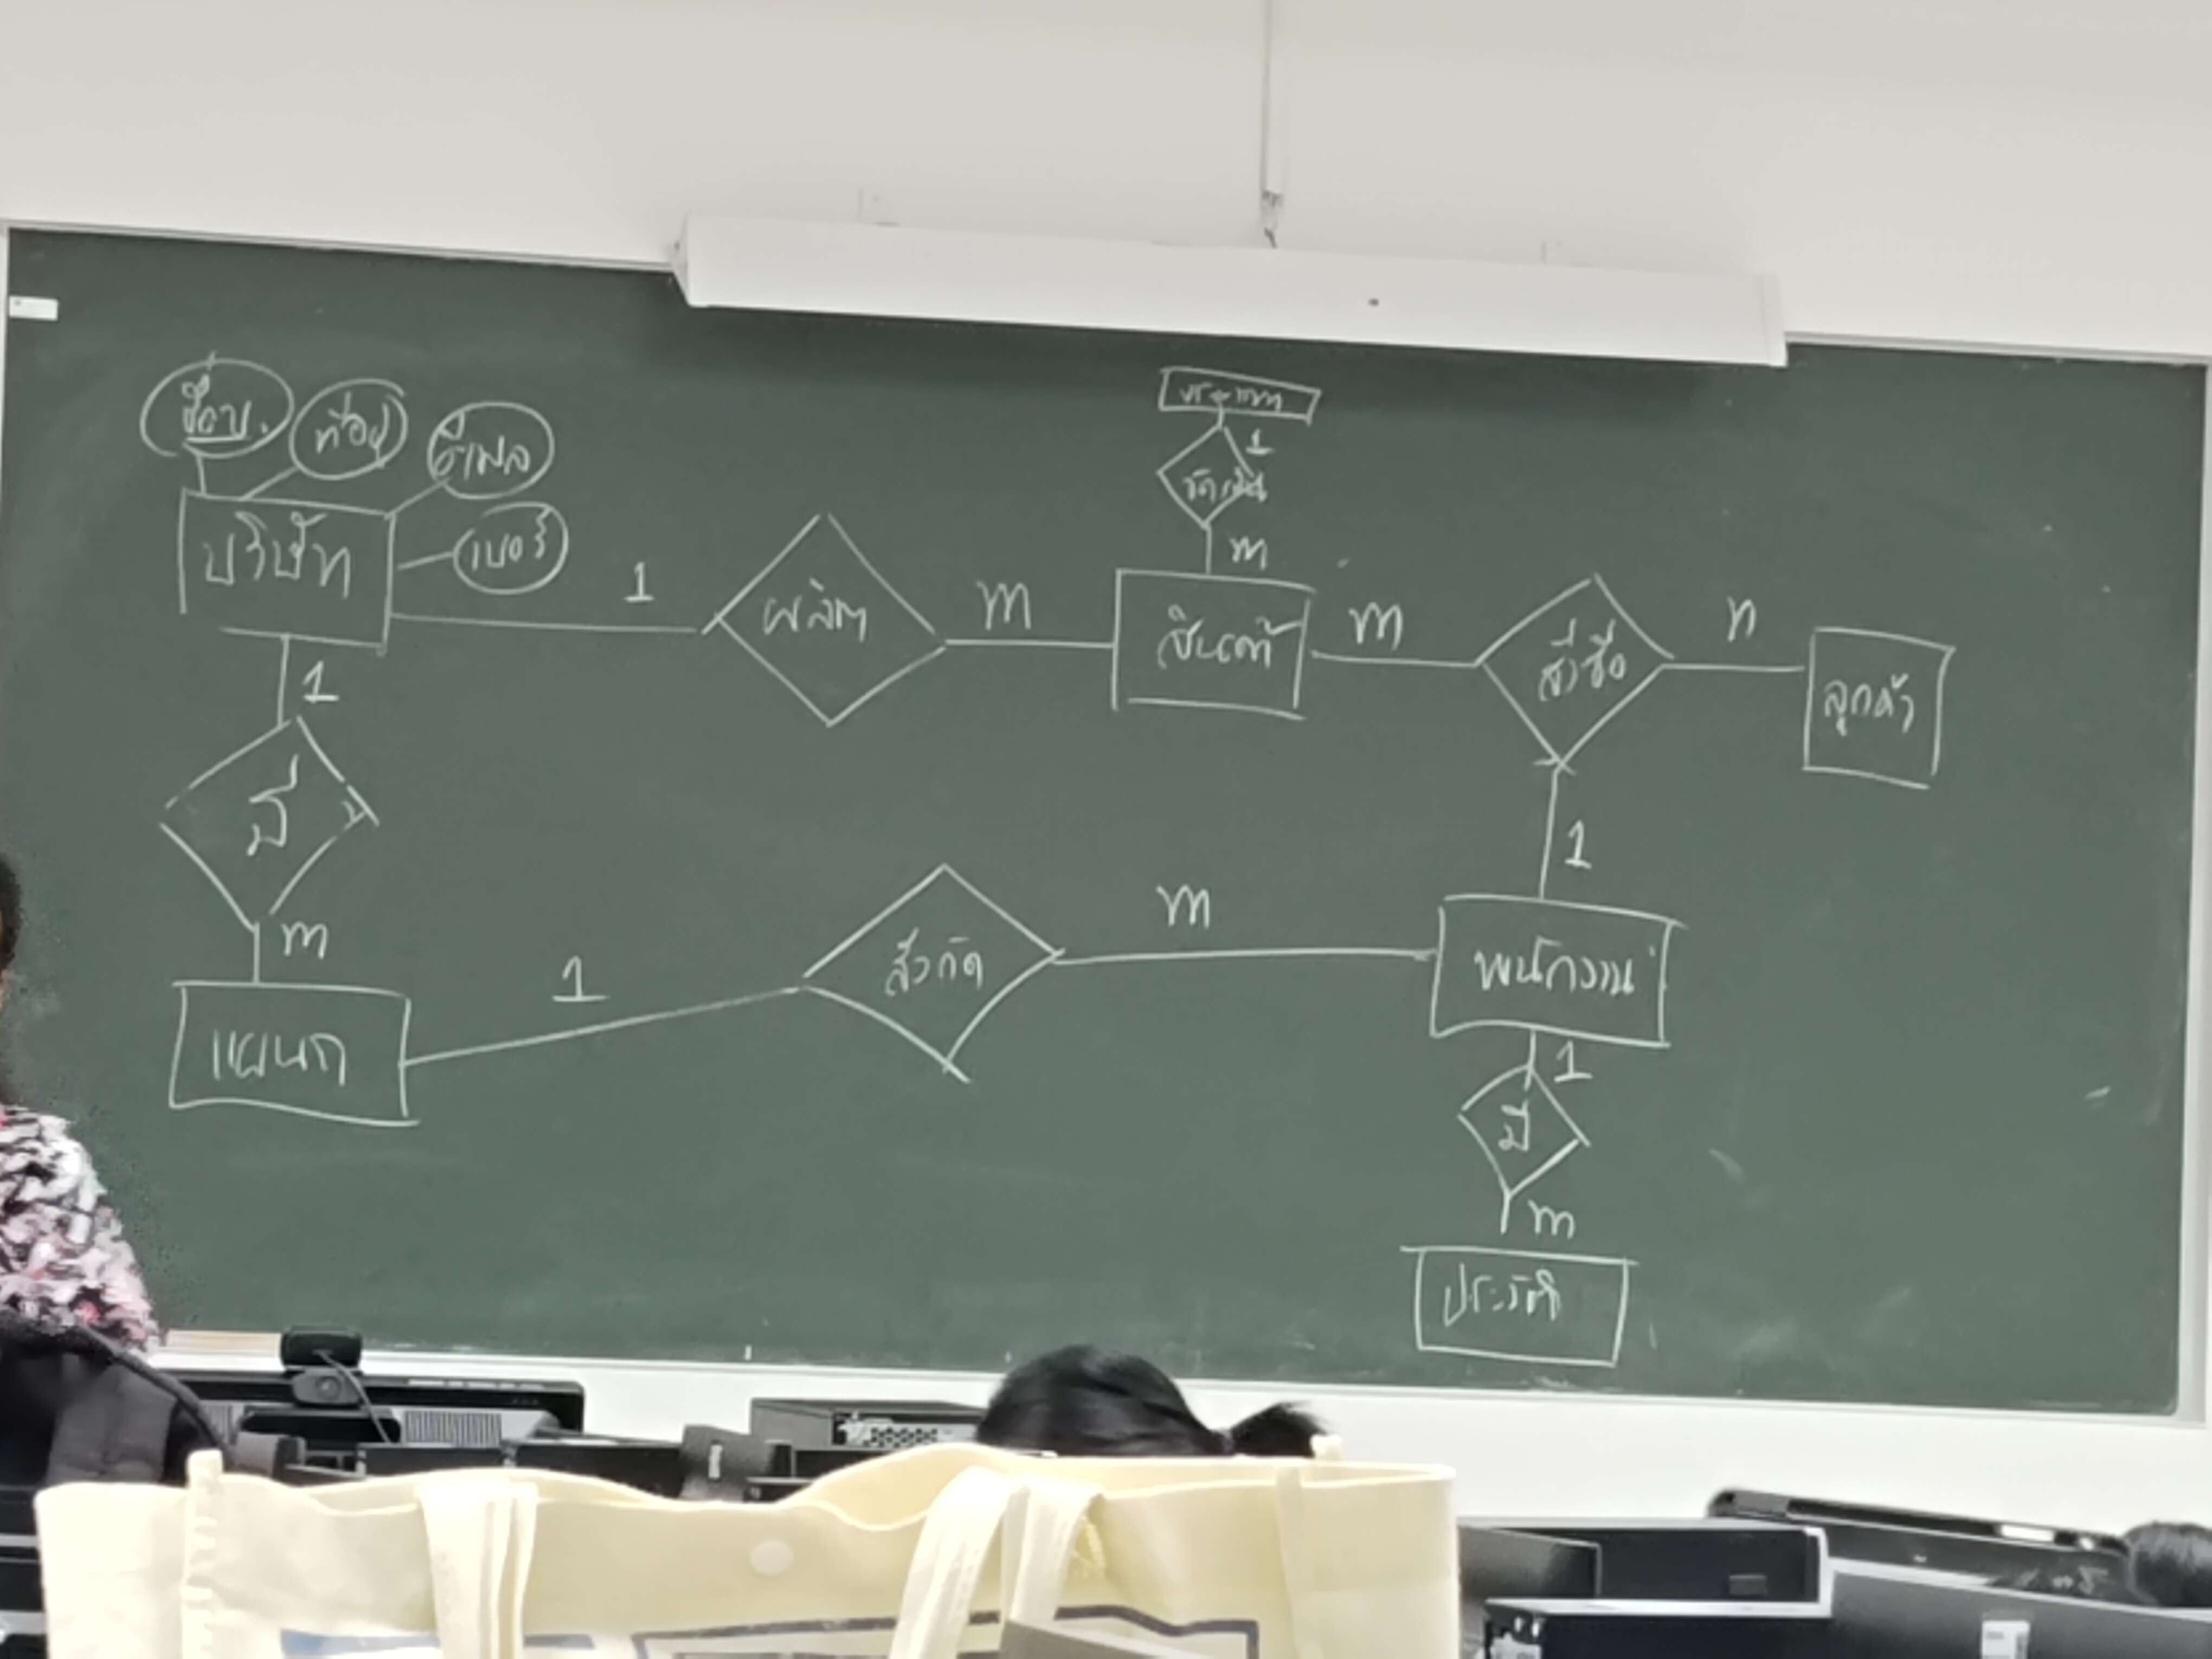 ชื่อบ.
ที่อยู่
อีเมล
เบอร์
บริษัท
1
ผลิต
m
ประเภท
1
จัดเป็น
m
สินค้า
m
สั่งซื้อ
n
ลูกค้า
1
มี
m
แผนก
1
สังกัด
m
1
พนักงาน
1
มี
m
ประวัติ